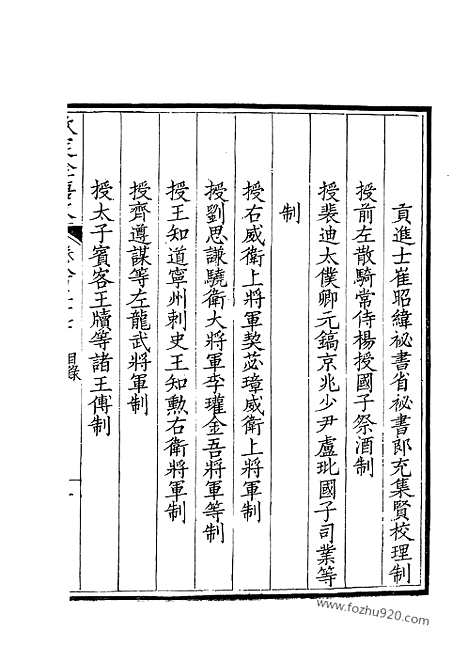 貢進士崔昭緯祕書省祕書郎充集賢校理制
授前左散騎常侍楊授國子祭酒制
授裴迪太僕卿元鎬京兆少尹盧玭國子司業等
制
授右威衛上將軍契苾璋威衛上將軍制
授劉思謙驍衛大將軍李瓘金吾將軍等制
授王知道寧州刺史王知勲右衛將軍制
授齊遵謀等左龍武將軍制
授太子賓客王牘等諸王傅制
目錄
www.fozhu920.com